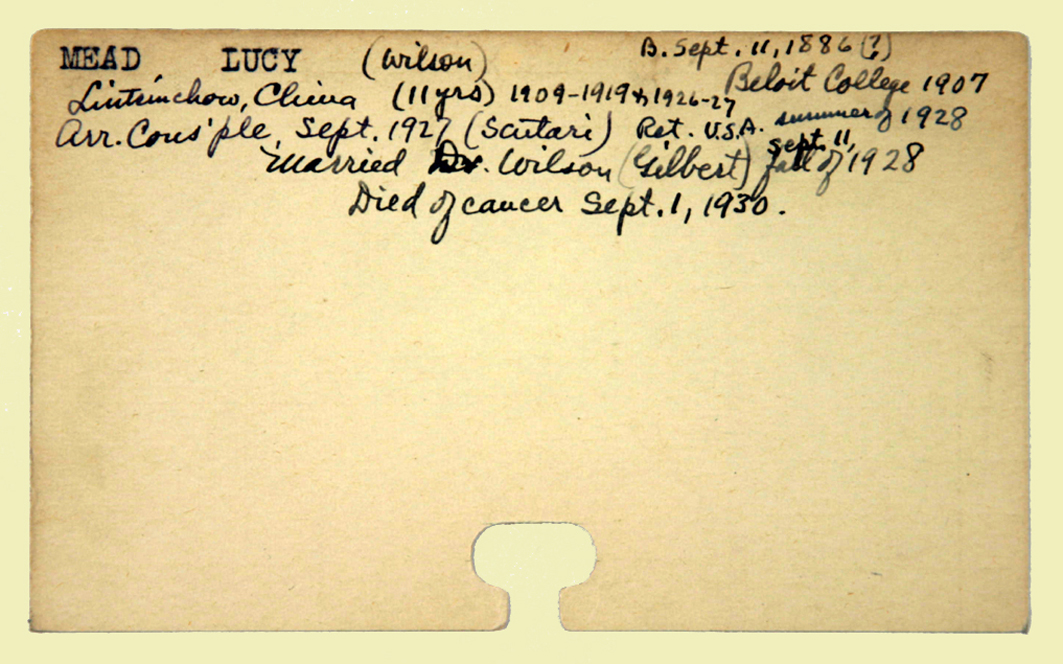 MEAD LUCY (Wilson) B. Sept. 11, 1886 (?)
Beloit College 1907
Lintsinchow, China (11 yrs) 1909-1919 & 1926-27
Arr. Cons'ple, Sept. 1927 (Scutari) Ret. U.S.A. summer of 1928
Sept. 11,
Married Dr. Wilson (Gilbert) fall of 1928
Died of cancer Sept. 1, 1930.